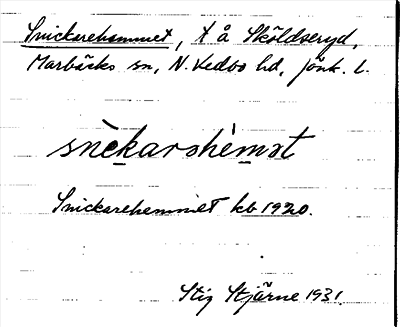 Snickarehemmet, t å Sköldseryd,
Marbäcks sn, N. Vedbo hd, Jönk. l.
snèkarshèmət
Snickarehemmet kb 1920.
Stig Stjärne 1931.